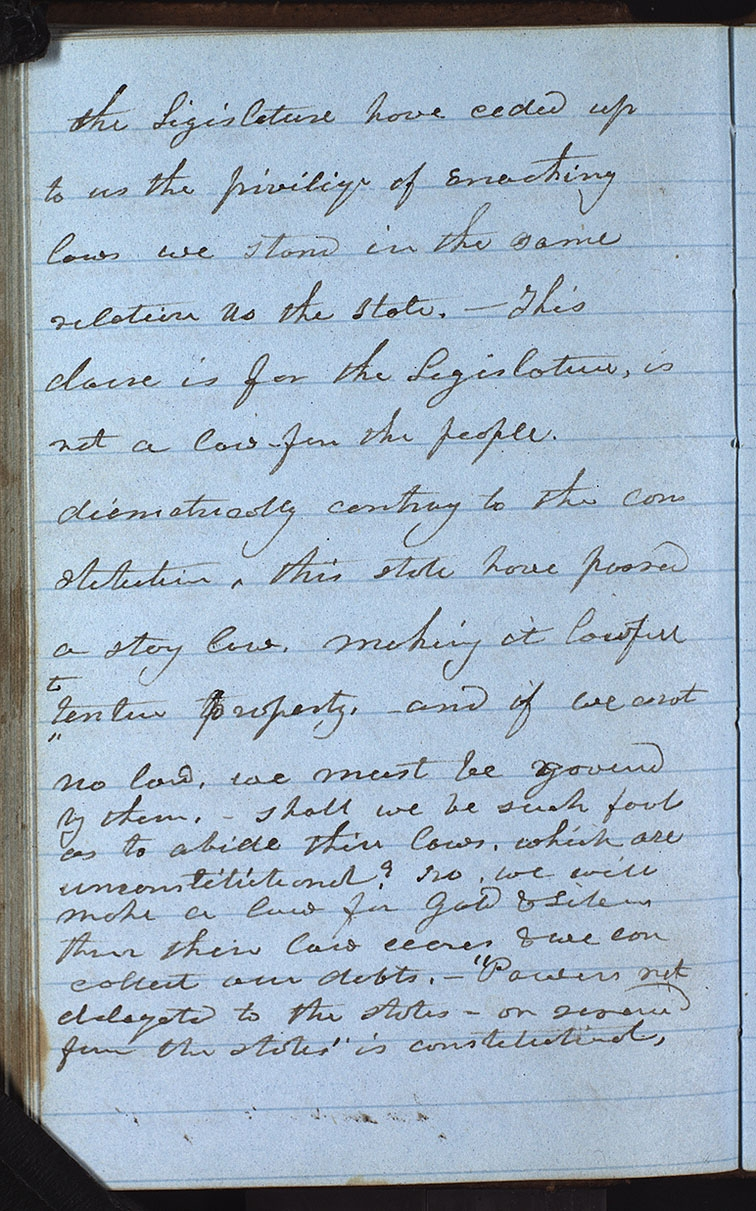 the Legislature have ceded up
to us the privilige of enacting
laws we stand in the same
relation as the state. — This
clause is for the Legislature, is
not a law for the people.
diametrically contray to the con
stitution, this state have passed
a stay law, making it lawfull
to
tender property, and if we enact
no law, we must be governd
by them. – shall we be such fools
as to abide their laws, which are
unconstitutional? no, we will
make a law for gold & silver
then their law ceases & we can
collect our debts. – "Powers not
delegated to the states – or reserved
from the states" is constitutional,